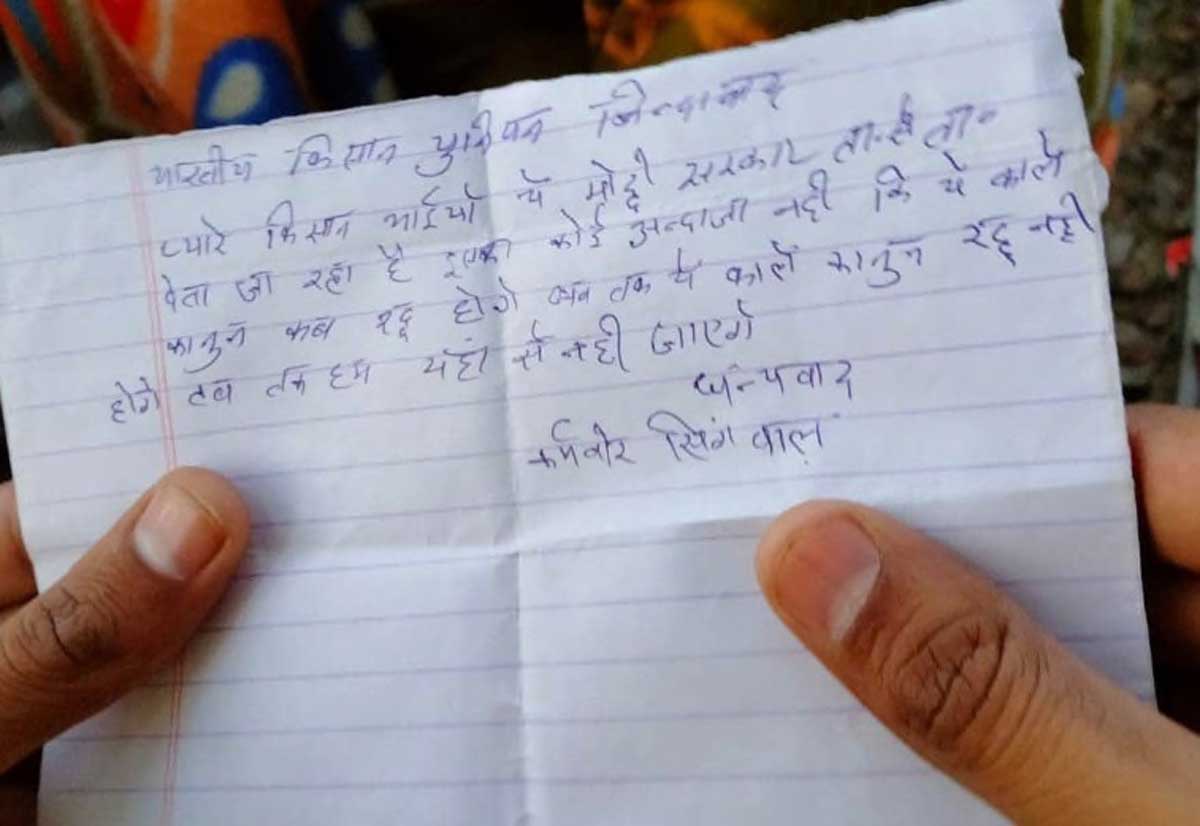 भारतीय किसान युनियन जिन्दाबाद
प्यारे किसान भाईयों ये मोदी सरकार तारीख पे तारीख
देता जा रहा है इसका कोई अन्दाजा नही कि ये काले
कानुन कब रद्द होगे जब तक ये काले कानुन रद्द नही
होगे तब तक हम यहां से नही जाएगे
धन्यवाद
कर्मवीर सिंगवाल